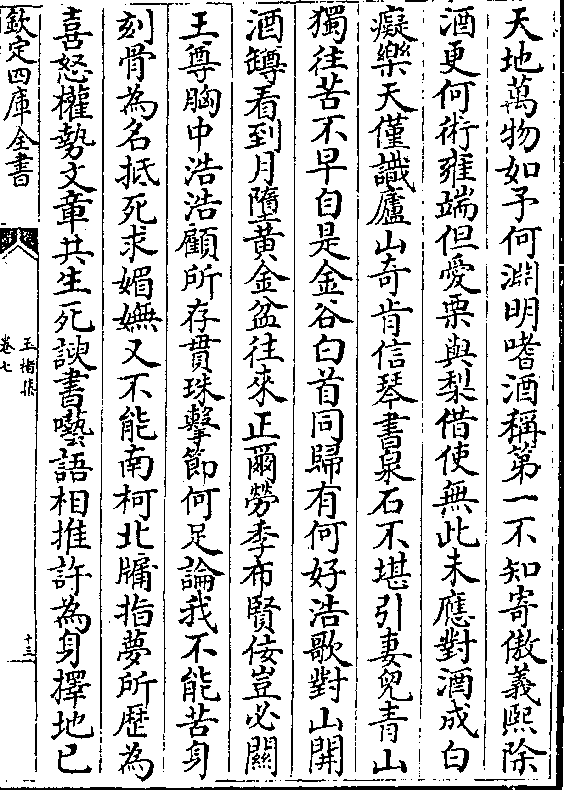 天地萬物如予何淵明嗜酒稱第一不知寄傲義熙除
酒更何術雍端但愛栗與梨借使無此未應對酒成白
癡樂天僅識廬山奇肯信琴書泉石不堪引妻兒青山
獨往苦不早自是金谷白首同歸有何好浩歌對山開
酒罇看到月墮黃金盆往來正爾勞季布賢佞豈必關
王尊胸中浩浩顧所存貫珠擊節何足論我不能苦身
刻骨為名抵死求媚嫵又不能南柯北牖指夢所歴為
喜怒權勢文章共生死諛書囈語相推許為身擇地已
欽定四庫全書
卷七
十三